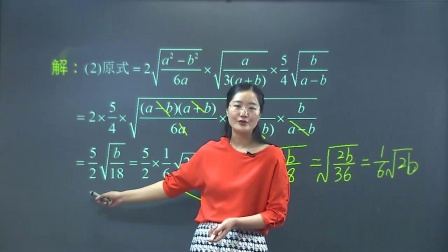 解：(2)原式 = 2√((a²−b²)/(6a)) × √(a/(3(a+b))) × 5/4 √(b/(a−b))
= 2 × 5/4 × √((a−b)(a+b)/(6a) × b)/(a−b)
= 5/2 √(b/18) = 5/2 × 1/6 √ = √(2b/36) = 1/6 √2b